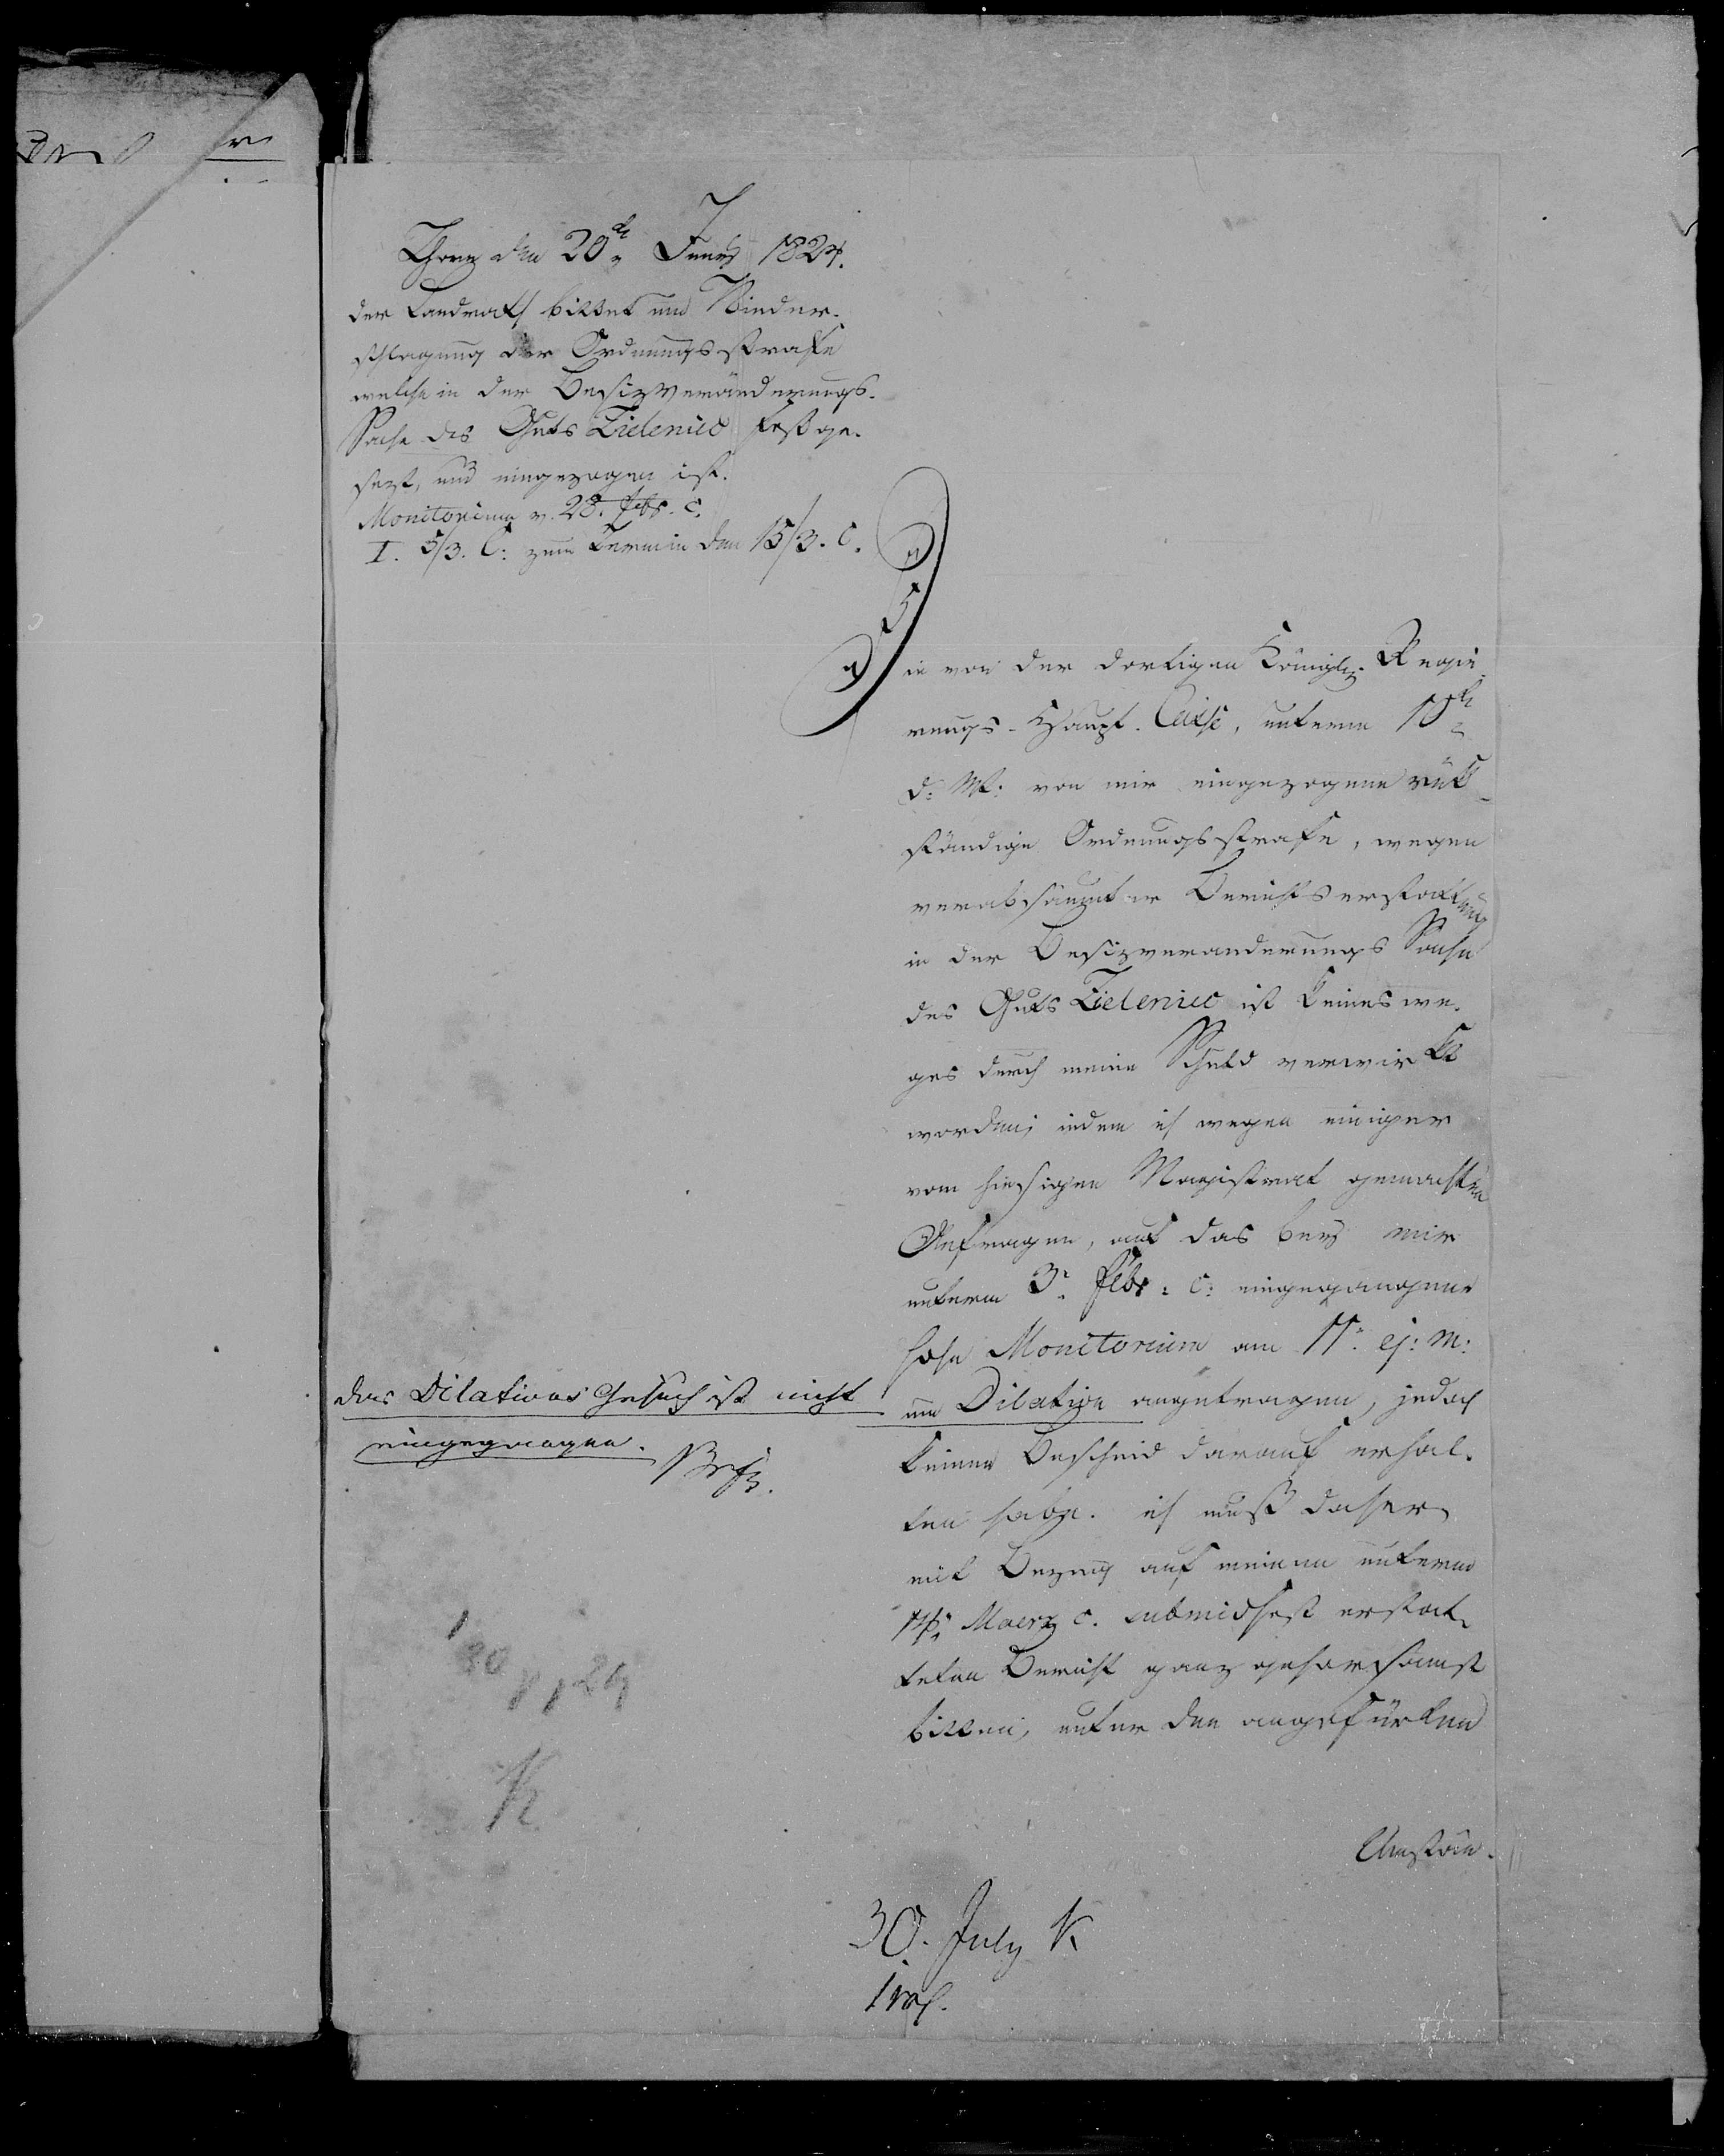 Thorn den 20n Juny 1824.
der Landrath bittet um Nieder-
schlagung der Ordnungsstrafe
welche in der Besizveränderungs-
Sache des Guts Zieleniec festge-
sezt, und eingezogen ist.
Monitorium v. 28. Febr. c.
I. 5/3. C: zum Termin den 15/3. c.
Die von der dortigen Königl. Regie-
rungs-Haupt-Casse, unterm 10n
d: M: von mir eingezogene rük-
ständige Ordnungsstrafe, wegen
verabsäumter Berichtserstattung
in der Besizveranderungs Sache
des Guts Zieleniec ist keineswe-
ges durch meine Schuld verwirkt
worden; indem ich wegen einiger
vom hiesigen Magistrat gemachten
Anfragen, auf das bey mir
unterm 3n Febr: c: eingegangene
hohe Monitorium am 11n ej: m:
um Dilation angetragen, jedoch
keinen Bescheid darauf erhal-
ten habe. ich muß daher
mit Bezug auf meinen unterm
14n Maerz c. submidhest erstat-
teten Bericht ganz gehorsamst
bitten, unter den angeführten
Umstän-
das Dilations Gesuch ist nicht
eingegangen.
30
K
30. July K